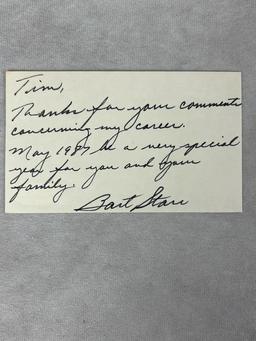 Tim,
Thanks for your comments
concerning my career.
May 1987 be a very special
year for you and your
family.
Bart Starr